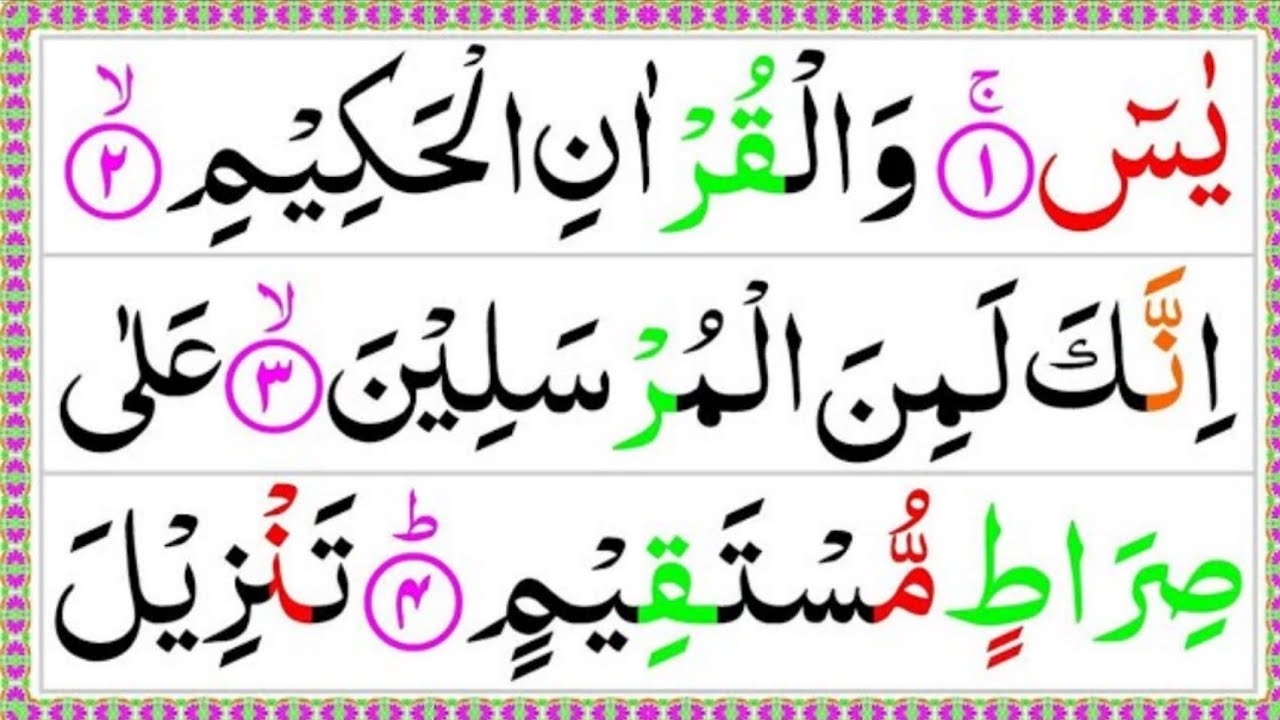 يٰسٓ ۚ﴿۱﴾ وَالْقُرْاٰنِ الْحَكِيْمِ ۙ﴿۲﴾
اِنَّكَ لَمِنَ الْمُرْسَلِيْنَ ۙ﴿۳﴾ عَلٰى
صِرَاطٍ مُّسْتَقِيْمٍ ؕ﴿۴﴾ تَنْزِيْلَ